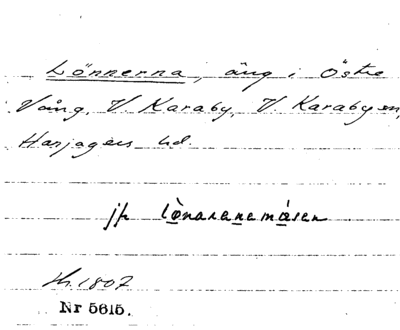 Lönnerna, äng i Östre
Vång, V. Karaby, V. Karaby sn,
Harjagers hd.
jfr lònaranamåsen
Nr 5615.